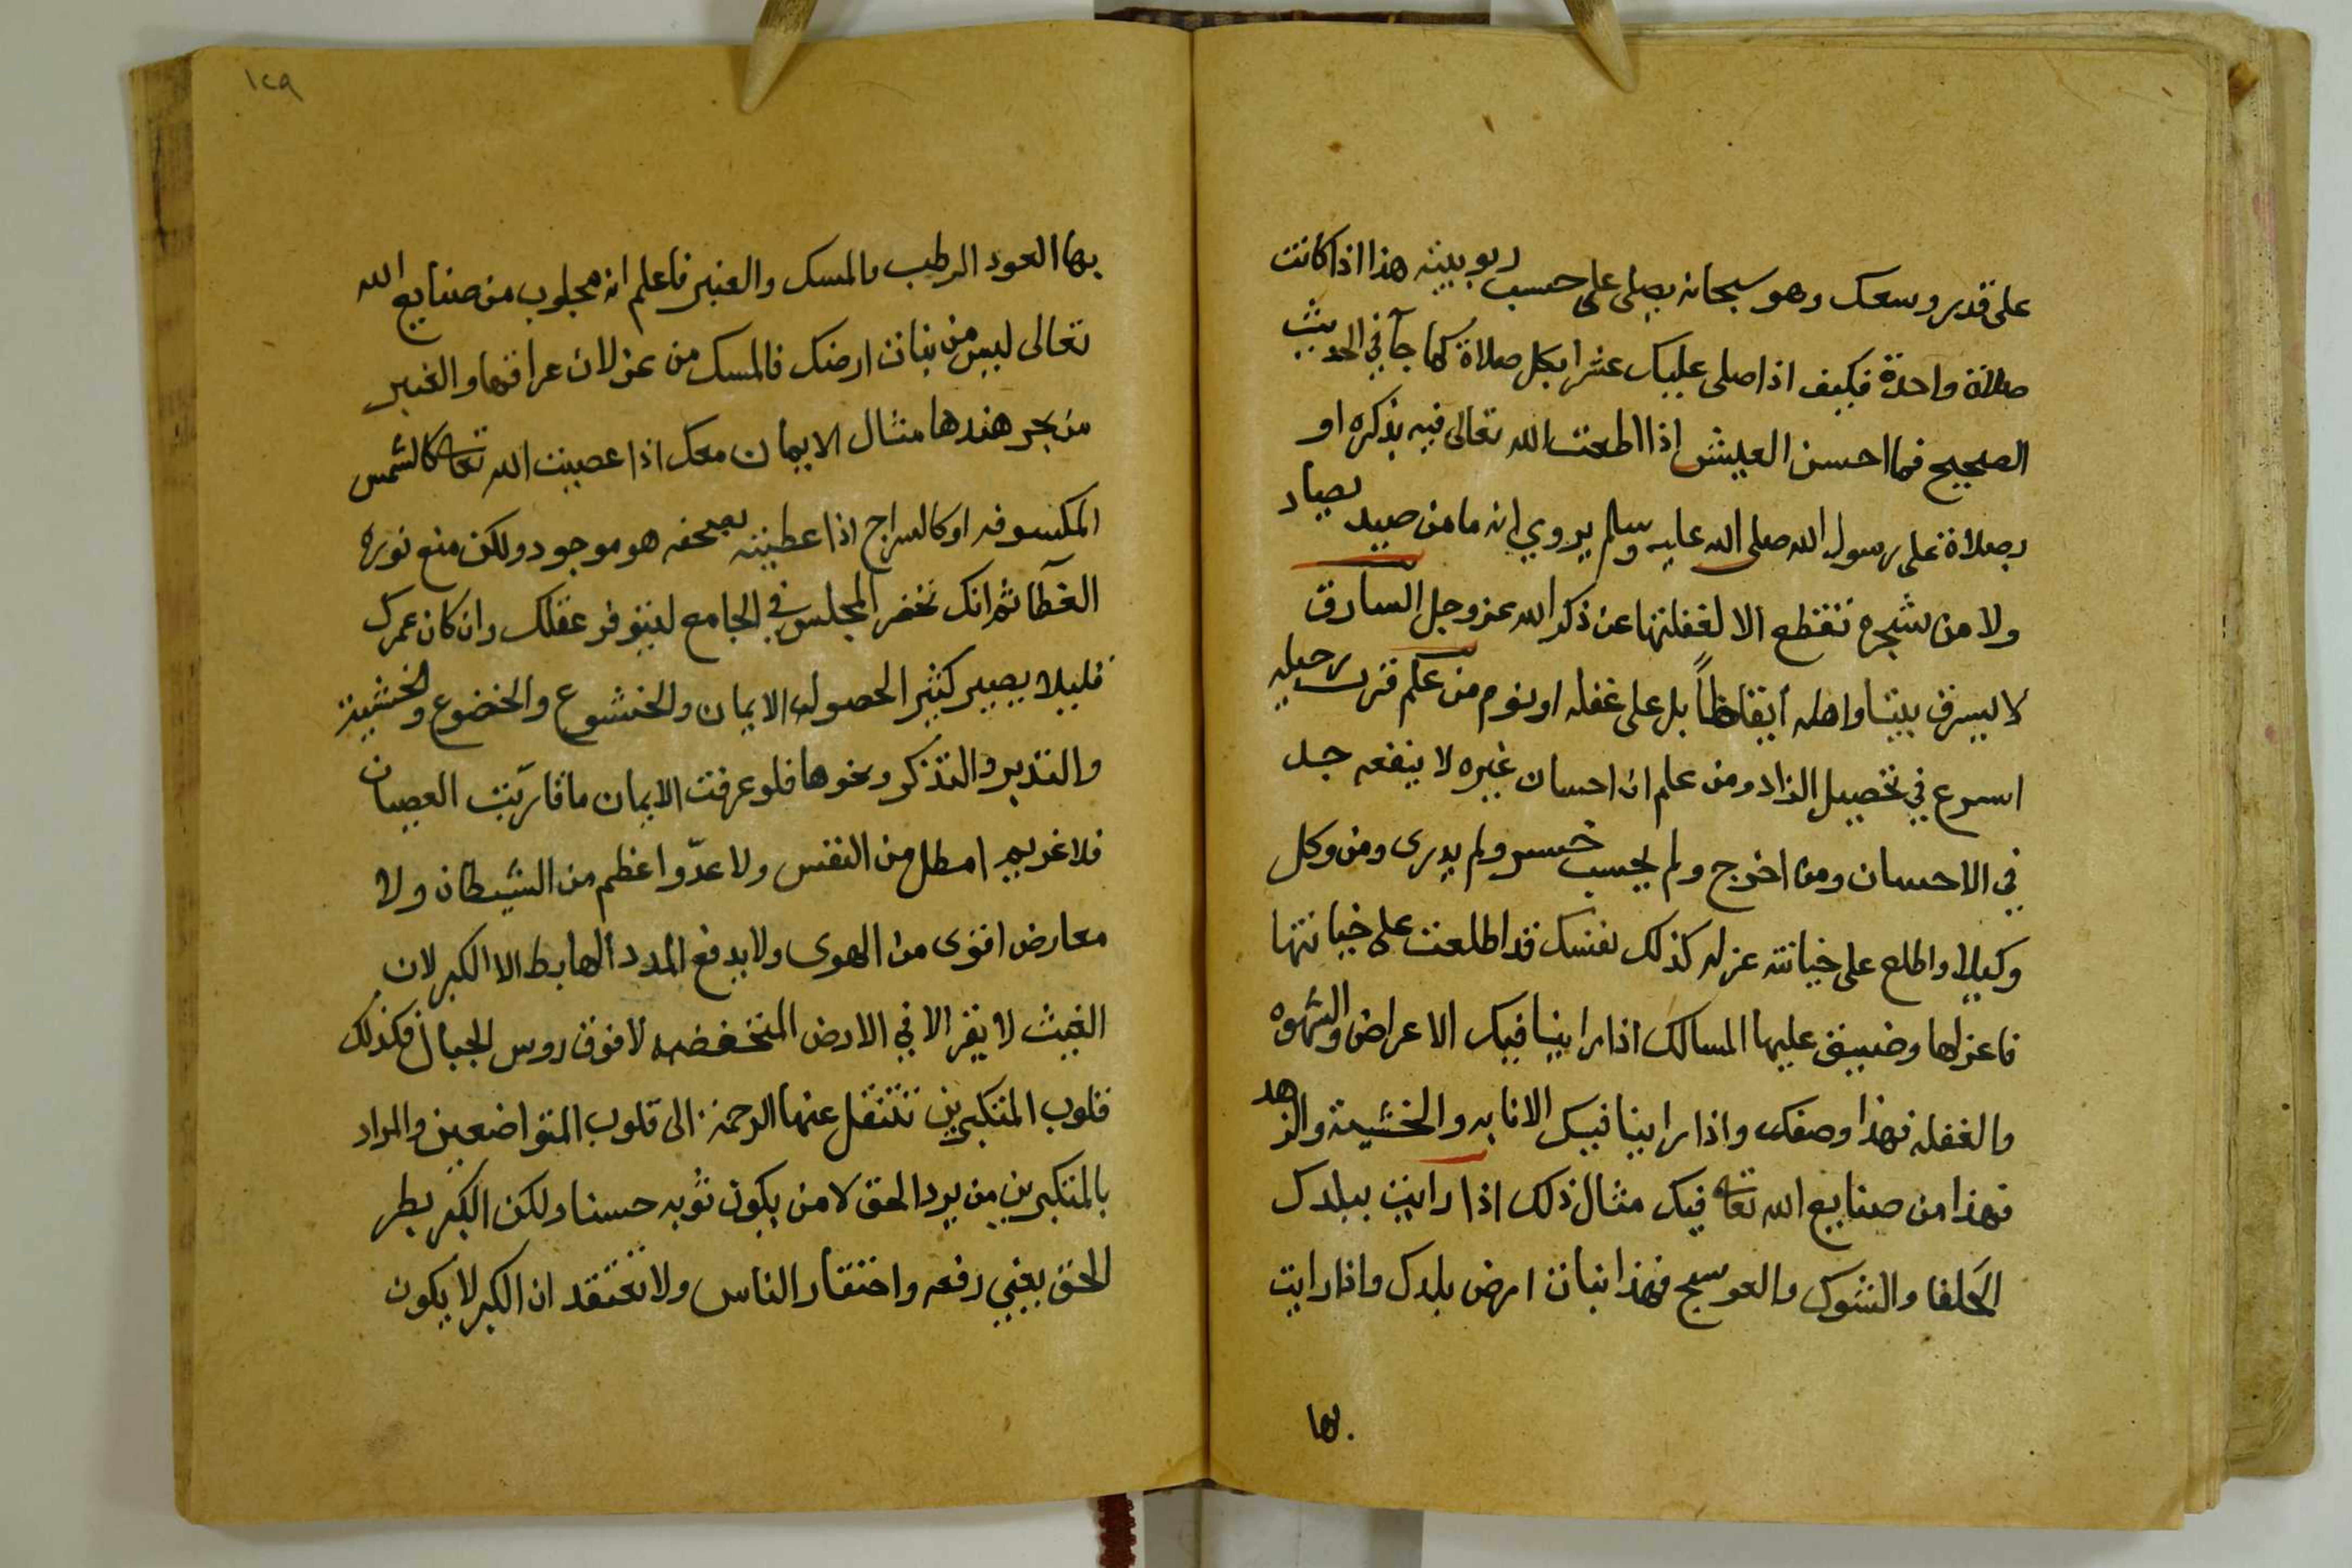 على قدر وسعك وهو سبحانه يصلى على حسب ربوبيته هذا اذا كانت
صلاة واحدة فكيف اذا صلى عليك عشرا بكل صلاة كما جآ في الحديث
الصحيح فما احسن العيش اذا اطعت الله تعالى فيه بذكره او
بصلاة على رسول الله صلى الله عليه وسلم يروي انه ما من صيد يصاد
ولا من شجره تقطع الا لغفلتها عن ذكر الله عز وجل السارق
لا يسرق بيتا واهله أيقاظاً بل على غفله او نوم من علم قرب رحيله
اسرع في تحصيل الزاد ومن علم ان احسان غيره لا ينفعه جد
في الاحسان ومن اخرج ولم يحسب خسر ولم يدرى ومن وكل
وكيلا واطلع على خيانته عزله كذلك نفسك قد اطلعت على خيانتها
فاعزلها وضيق عليها المسالك اذا راينا فيك الاعراض والشهوه
والغفله فهذا وصفك واذا راينا فيك الانابه والخشية والزهد
فهذا من صنايع الله تعالى فيك مثال ذلك اذا رايت ببلدك
الحَلفا والشوك والعوسج فهذا نبات ارض بلدك واذا رايت
بها
١٢٩
بها العود الرطب والمسك والعنبر فاعلم انه مجلوب من صنايع الله
تعالى ليس من نبات ارضك فالمسك من غزلان عراقها والعنبر
من بحر هندها مثال الايمان معك اذا عصيت الله تعالى كالشمس
المكسوفه او كالسراج اذا غطيته بصحفه هو موجود ولكن منع نوره
الغطآ ثم انك تحضر المجلس في الجامع ليتوفر عقلك وان كان عمرك
قليلا يصير كثيرا لحصول الايمان والخشوع والخضوع والخشية
والتدبر والتذكر ونحوها فلو عرفت الايمان ما قاربت العصيان
فلا غريم امطل من النفس ولا عدّوا اعظم من الشيطان ولا
معارض اقوى من الهوى ولا يدفع المدد الهابط الا الكبر لان
الغيث لا يقر الا في الارض المنخفضه لا فوق روس الجبال فكذلك
قلوب المتكبرين تنتقل عنها الرحمة الى قلوب المتواضعين والمراد
بالمتكبرين من يرد الحق لا من يكون ثوبه حسنا ولكن الكبر بطر
الحق يعني دفعه واحتقار الناس ولا تعتقد ان الكبر لا يكون